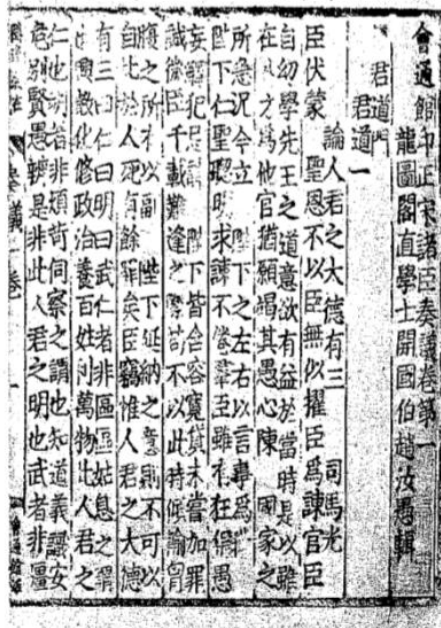 會通館印正宋諸臣奏議卷第一
龍圖閣直學士開國伯趙汝愚輯
君道門
君道一
論人君之大德有三 司馬光
臣伏蒙 聖恩不以臣無似擢臣爲諫官臣
自幼學先王之道意欲有益於當時是以雖
在外方爲他官猶願竭其愚心陳 國家之
所急況今立 陛下之左右以言事爲職
陛下仁聖聰明求諫不倦羣臣雖有狂僻愚
妄觸犯忌諱 陛下皆含容寬貸未嘗加罪
誠微臣千載難逢之際苟不以此時傾輸胷
腹之所有以副 陛下延納之意則不可以
自比於人死有餘罪矣臣竊惟人君之大德
有三曰仁曰明曰武仁者非區區姑息之謂
也興教化修政治養百姓利萬物此人君之
仁也明者非煩苛伺察之謂也知道義識安
危別賢愚辨是非此人君之明也武者非彊
奏議 卷一